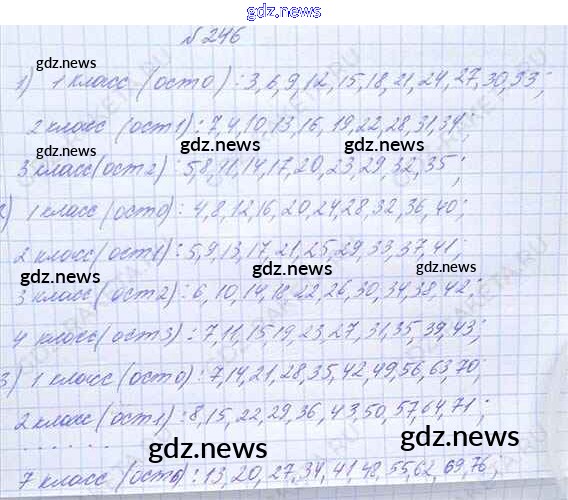 gdz.news
№ 246
gdz.news gdz.news
1) 1 класс (ост 0) : 3,6,9,12,15,18,21,24,27,30,33;
2 класс (ост1) : 7,4,10,13,16, 19,22,28,31,34;
gdz.news gdz.news gdz.news
3 класс (ост 2) : 5,8,11,14,17,20,23,29,32,35;
2) 1 класс (ост0) : 4,8,12,16,20,24,28,32,36,40;
2 класс (ост1) : 5,9,13,17,21,25,29,33,37,41;
gdz.news gdz.news gdz.news
3 класс (ост2) : 6,10,14,18,22,26,30,34,38,42;
4 класс (ост3) : 7,11,15,19,23,27,31,35,39,43;
3) 1 класс (ост0) : 7,14,21,28,35,42,49,56,63,70;
2 класс (ост1) : 8,15,22,29,36,43,50,57,64,71;
. . . . . .
gdz.news gdz.news
7 класс (ост6) : 13,20,27,34,41,48,55,62,69,76;